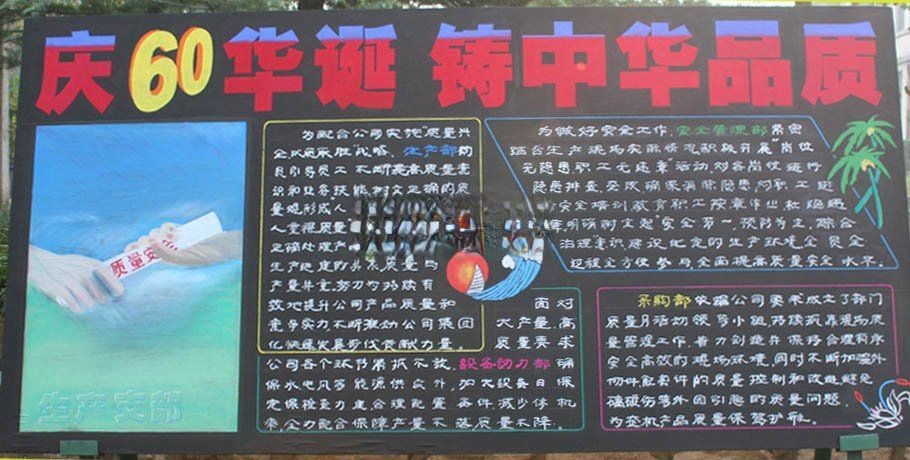 庆60华诞 铸中华品质
质量安
生产支部
为配合公司实施"质量兴
企以质取胜"战略、生产部均
员引导员工 不断提高质量意
识和业务技能 树立正确的质
量观形成"人
人重视质量
正确处理产
生产进度的关系 质量与
产量并重 努力为持续有
效地提升公司产品质量和
竞争实力 不断推动公司集团
化快速发展步伐贡献力量。
为做好安全工作,安全管理部紧密
结合生产现场实际情况积极开展"岗位
无隐患职工无违章"活动,对各岗位进行
隐患排查
安全培训教育职工按章作业杜绝违
明确树立起"安全第一 预防为主,综合
治理意识建设优良的生产环境全员全
过程全方位参与,全面提高质量安全 水平。
面对
大产量、高
质量要求
公司各个环节紧抓不放,设备动力部 确
保水电风等能源供应外,加大设备日 保
定保检查力度合理配置 备件减少停机
全力配合保障产量不 落质量不降.
采购部依据公司要求成立了部门
质量月活动领导小组,持续抓靠现场质
量管理工作,着力创造并保持合理有序
安全高效的现场环境,同时不断加强外
协件配套件的质量控制和改进避免
磕碰伤等外因引起的质量问题,
为整机产品质量保驾护航。